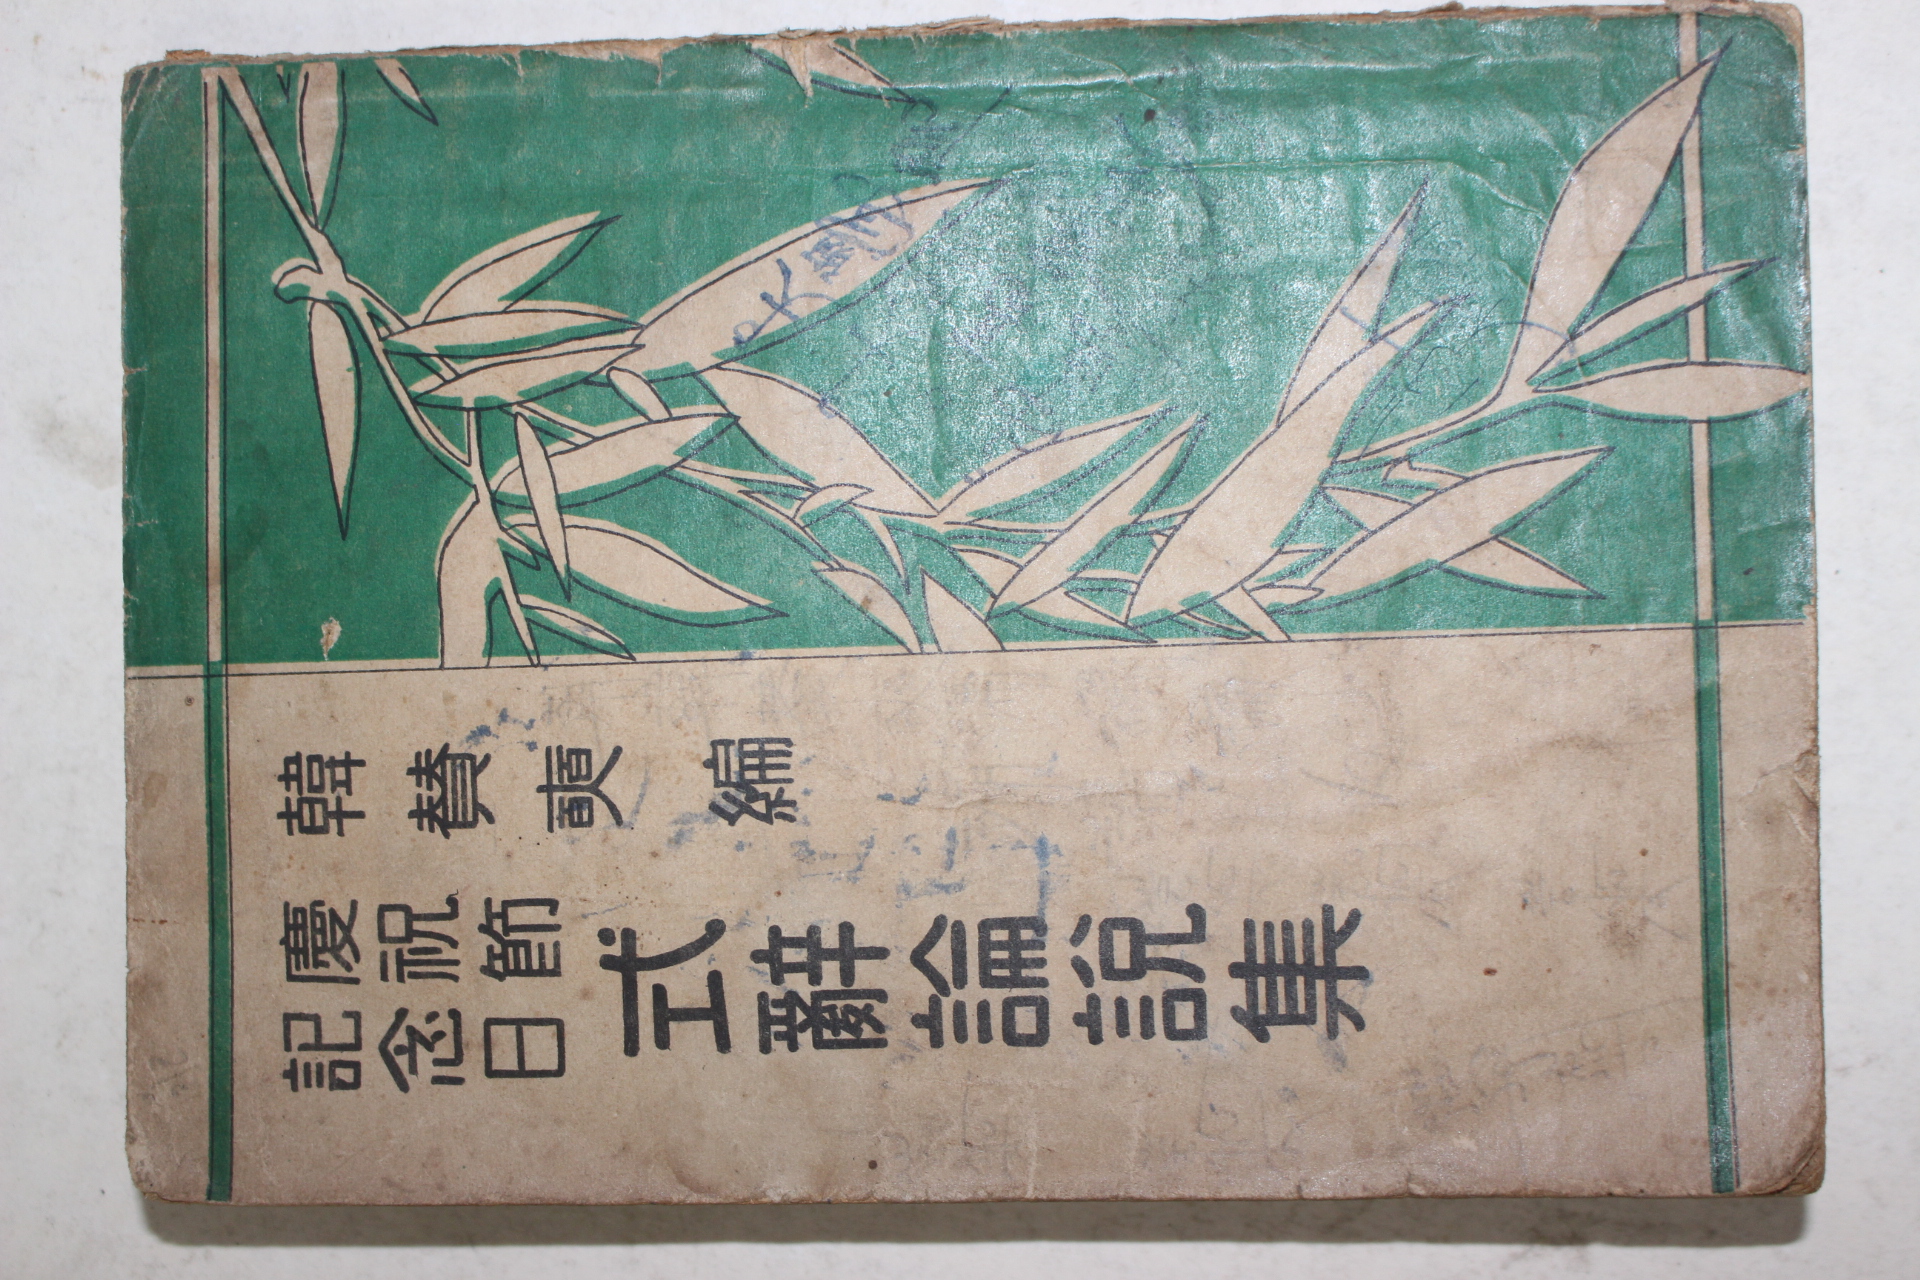 韓賛奭 編
慶祝節
記念日
式辭論説集